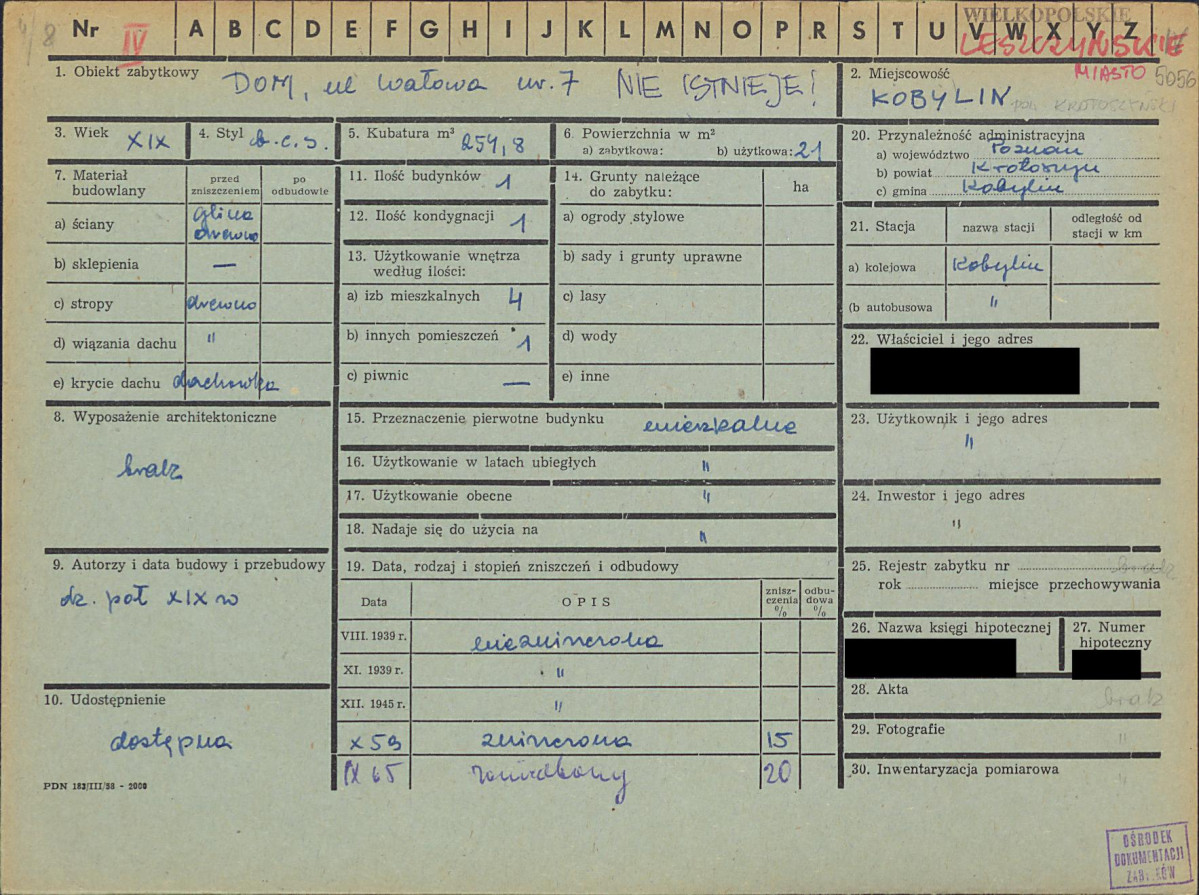 4/8
Nr IV A B C D E F G H I J K L M N O P R S T U V W X Y Z
WIELKOPOLSKIE
LESZCZYŃSKIE
MIASTO 5056
1. Obiekt zabytkowy DOM, ul Wałowa nr. 7 NIE ISTNIEJE!
2. Miejscowość
KOBYLIN pow. KROTOSZYŃSKI
3. Wiek XIX
4. Styl b.c.s.
5. Kubatura m³ 254,8
6. Powierzchnia w m²
a) zabytkowa: b) użytkowa: 21
7. Materiał budowlany
przed zniszczeniem
po odbudowie
a) ściany glina drewno
b) sklepienia —
c) stropy drewno
d) wiązania dachu "
e) krycie dachu dachówka
8. Wyposażenie architektoniczne
brak
9. Autorzy i data budowy i przebudowy
dr. poł XIX w
10. Udostępnienie
dostępna
PDN 183/III/58 - 2000
11. Ilość budynków 1
12. Ilość kondygnacji 1
13. Użytkowanie wnętrza według ilości:
a) izb mieszkalnych 4
b) innych pomieszczeń 1
c) piwnic —
14. Grunty należące do zabytku:
ha
a) ogrody stylowe
b) sady i grunty uprawne
c) lasy
d) wody
e) inne
15. Przeznaczenie pierwotne budynku mieszkalne
16. Użytkowanie w latach ubiegłych "
17. Użytkowanie obecne "
18. Nadaje się do użycia na "
19. Data, rodzaj i stopień zniszczeń i odbudowy
Data OPIS zniszczenia % odbudowa %
VIII. 1939 r. niezniszczona
XI. 1939 r. "
XII. 1945 r. "
X 59 zniszczona 15
IX 65 zaniedbany 20
20. Przynależność administracyjna
a) województwo Poznań
b) powiat Krotoszyn
c) gmina Kobylin
21. Stacja
nazwa stacji
odległość od stacji w km
a) kolejowa Kobylin
(b autobusowa "
22. Właściciel i jego adres
23. Użytkownik i jego adres
"
24. Inwestor i jego adres
"
25. Rejestr zabytku nr brak
rok miejsce przechowywania
26. Nazwa księgi hipotecznej
27. Numer hipoteczny
28. Akta brak
29. Fotografie "
30. Inwentaryzacja pomiarowa "
OŚRODEK
DOKUMENTACJI
ZABYTKÓW